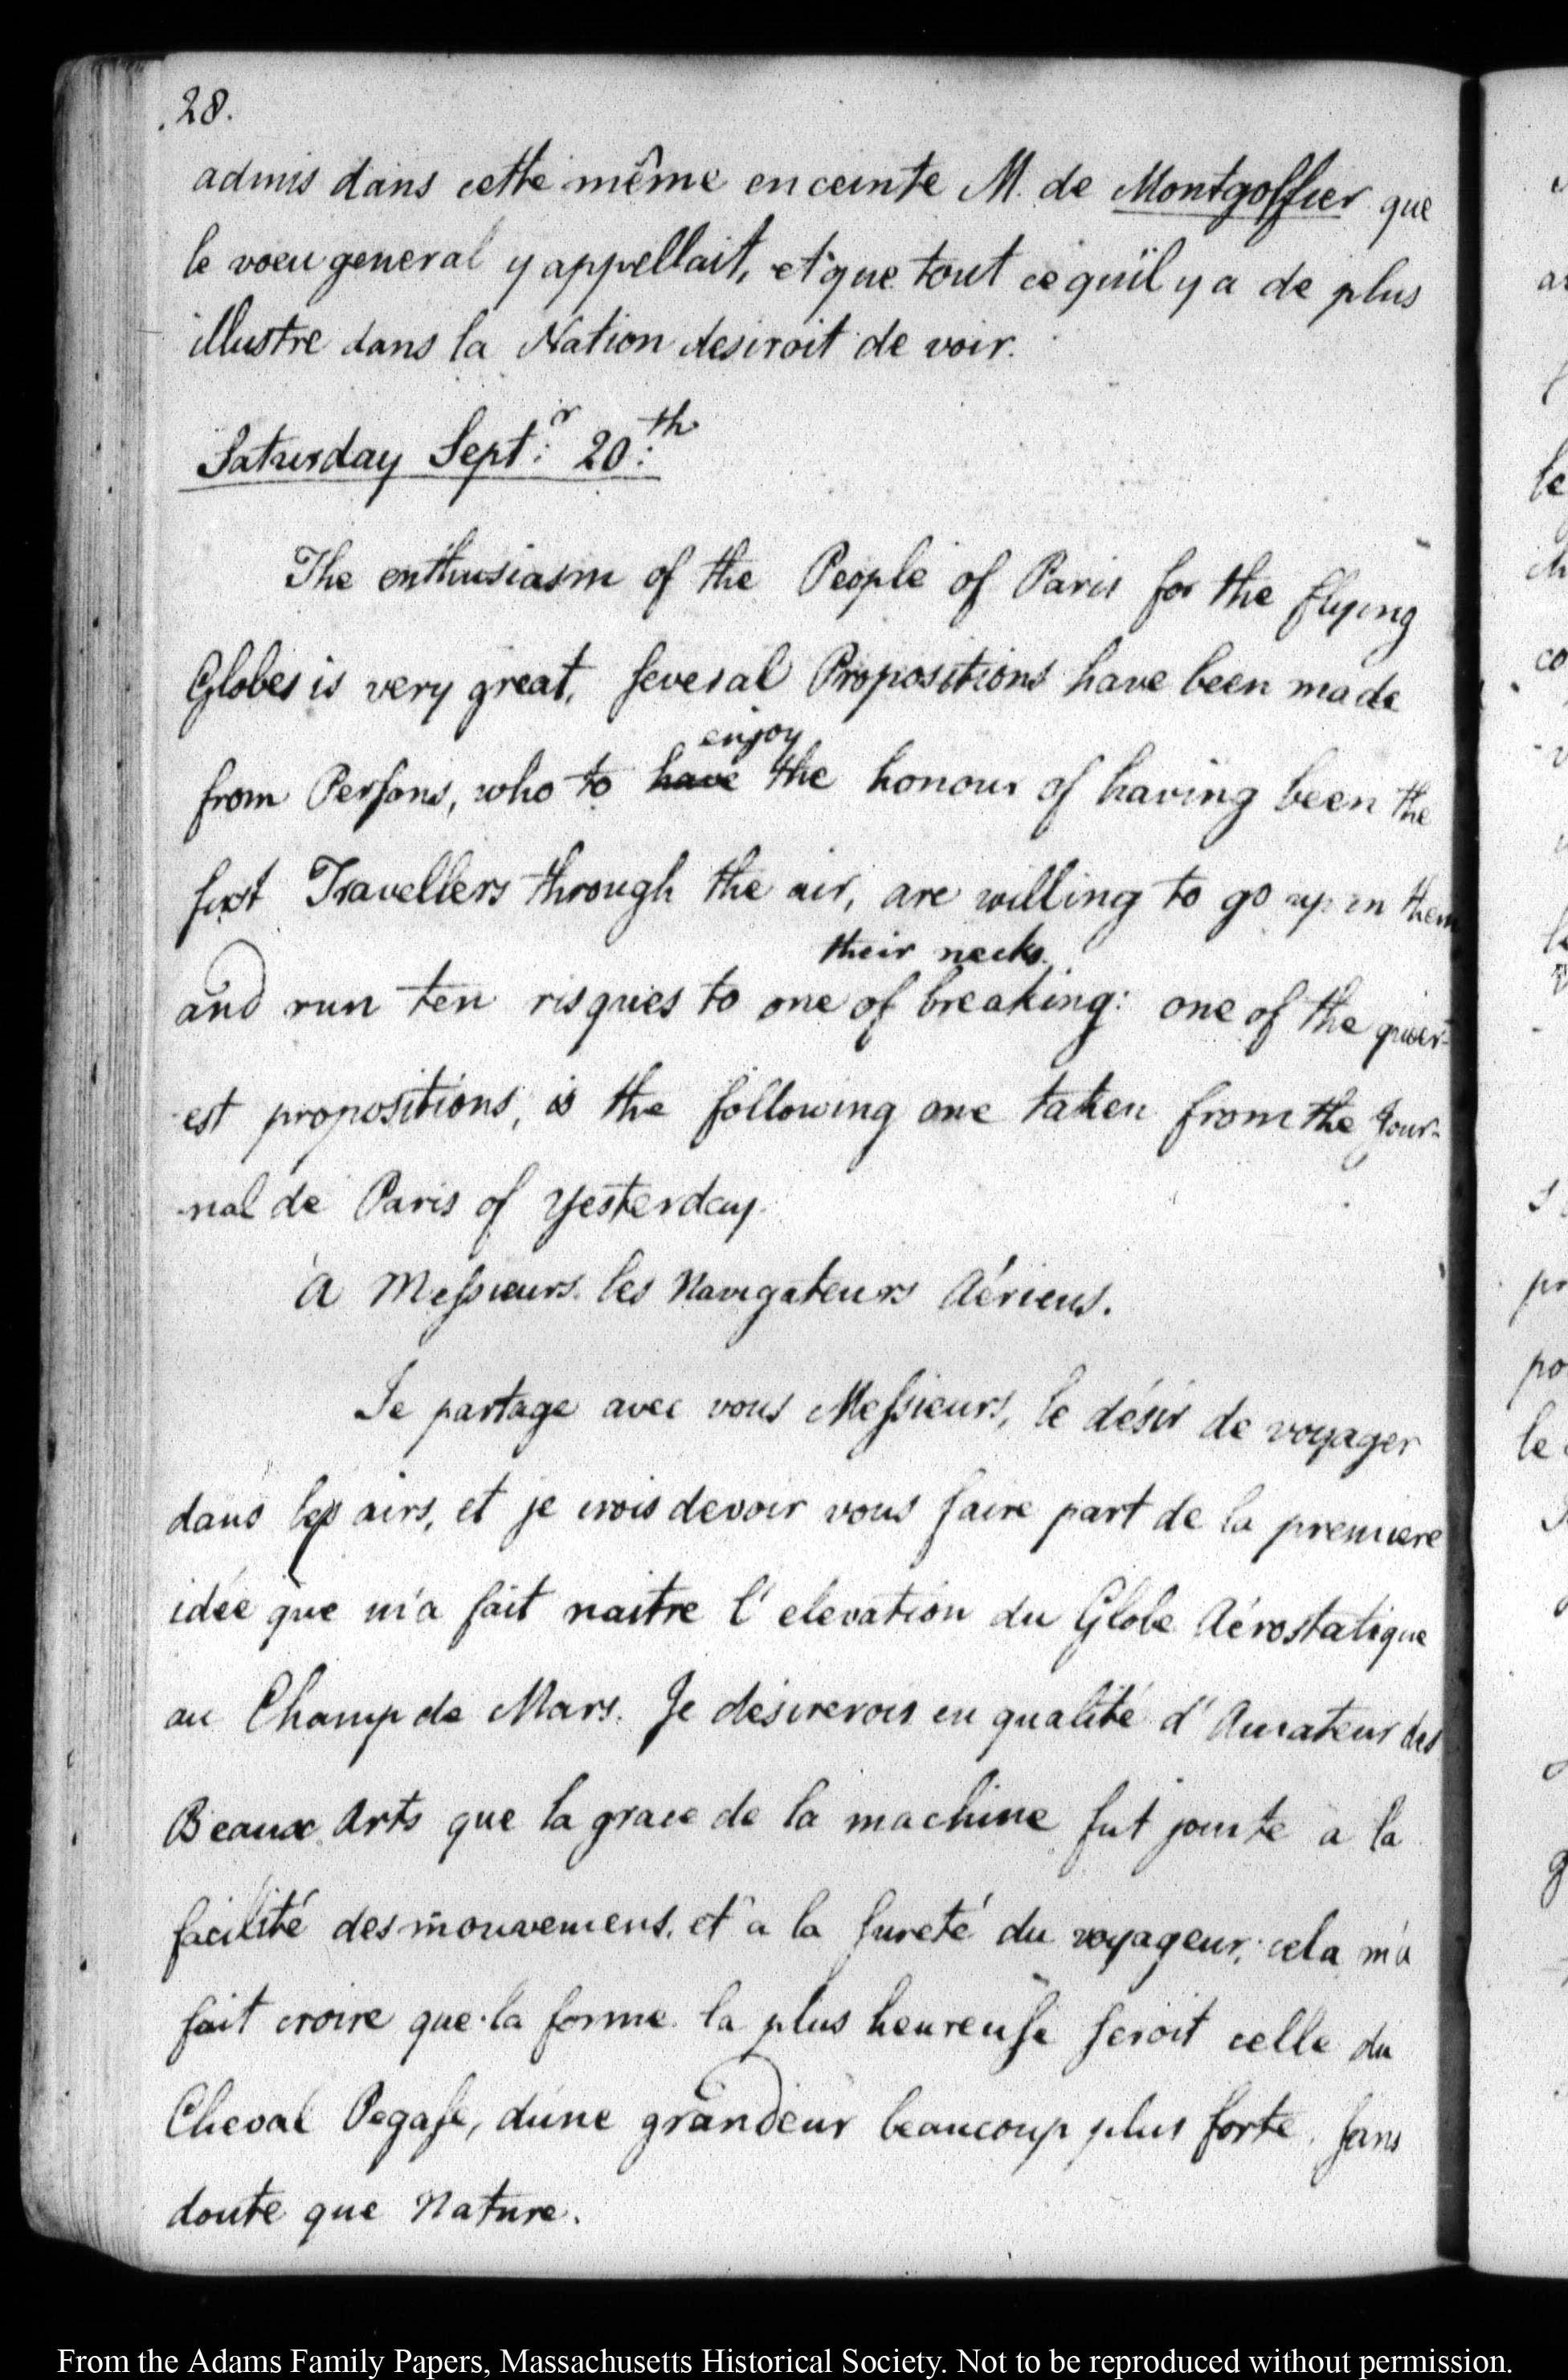 28.
admis dans cette même enceinte M. de Montgolfier que
le voeu general y appellait, et que tout ce qu'il y a de plus
illustre dans la Nation desiroit de voir.
Saturday Sept:r 20:th
The enthusiasm of the People of Paris for the flying
Globes is very great, several Propositions have been made
enjoy
from Persons, who to have the honour of having been the
first Travellers through the air, are willing to go up in them
their necks.
and run ten risques to one of breaking: one of the queer-
est propositions, is the following one taken from the Jour-
-nal de Paris of yesterday.
A Messieurs les Navigateurs Aériens.
Je partage avec vous Messieurs, le désir de voyager
dans les airs, et je crois devoir vous faire part de la premiere
idée que m'a fait naitre l'elevation du Globe Aérostatique
au Champ de Mars. Je desirerois en qualité d'Amateur des
Beaux Arts que la grace de la machine fut jointe a la
facilité des mouvemens, et a la sureté du voyageur; cela m'a
fait croire que la forme la plus heureuse seroit celle du
Cheval Pegase, d'une grandeur beaucoup plus forte, sans
doute que Nature.
From the Adams Family Papers, Massachusetts Historical Society. Not to be reproduced without permission.